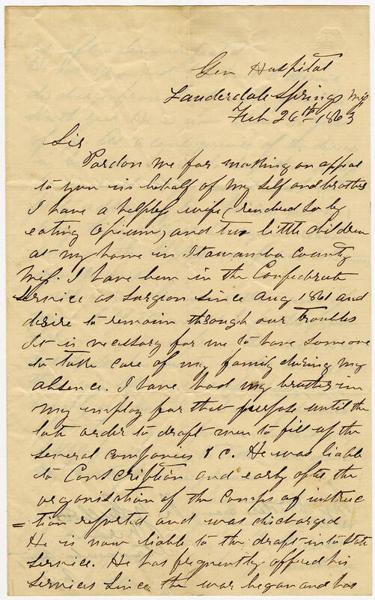 Gen Hospital
Lauderdale Springs Miss
Feb 26th 1863
Sir
Pardon me for making an appeal
to you in behalf of my self and brother
I have a helpless wife, rendered so by
eating Opium, and two little children
at my home in Itawamba County
Miss. I have been in the Confederate
Service as Surgeon since Aug 1861 and
desire to remain through our troubles
It is necessary for me to have someone
to take care of my family during my
absence. I have had my brother in
my employ for that purpose until the
late order to draft men to fill up the
several companies & c. He was liable
to Conscription and early after the
organisation of the Camps of instruc
=tion reported and was discharged
He is now liable to the draft into State
Service. He has frequently offered his
services since the war began and has